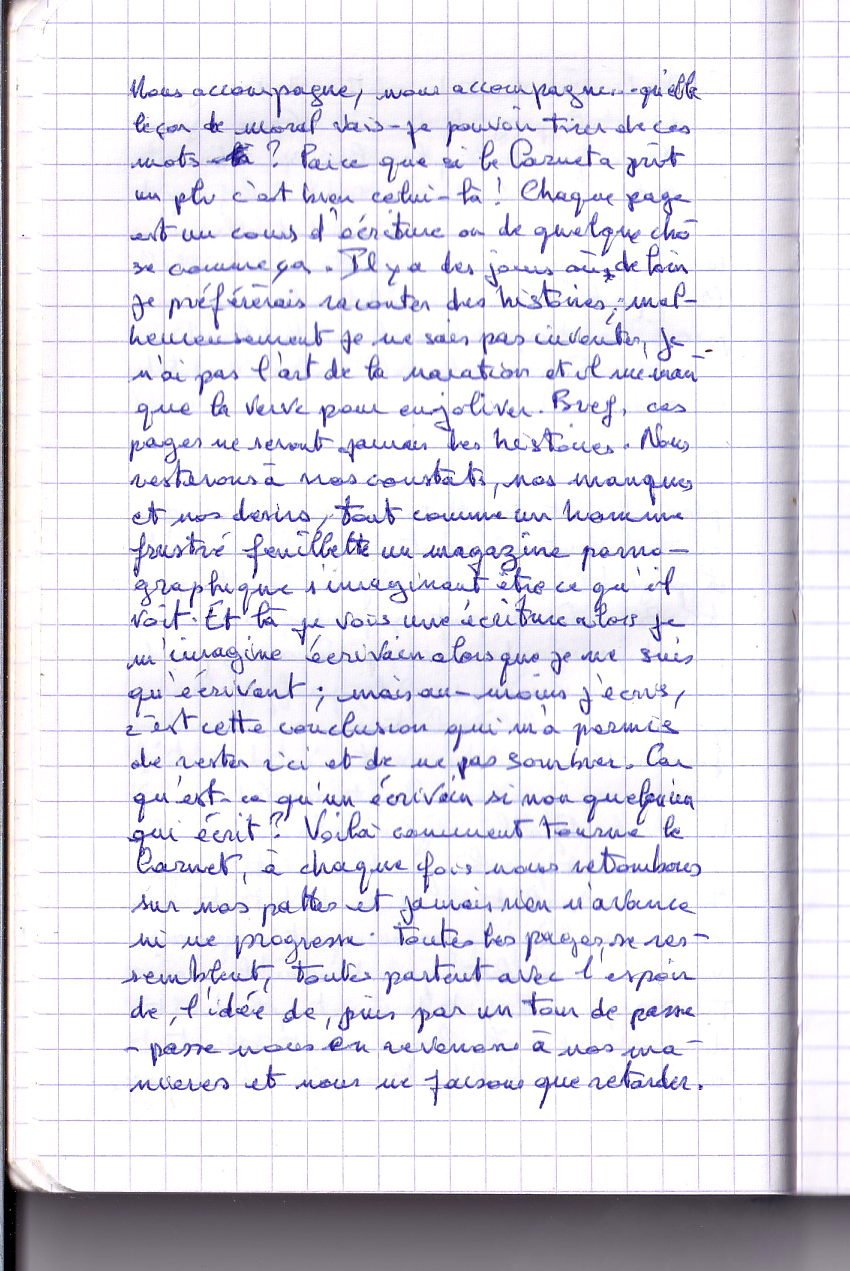 Nous accompagne, nous accompagne... qu'elle
leçon de moral vais-je pouvoir tirer de ces
mots là ? Parce que si le Carnet a prit
un pli c'est bien celui-là ! Chaque page
est un cours d'écriture ou de quelque cho
se comme ça. Il y a des jours où, de loin
je préférerais raconter des histoires, mal-
heureusement je ne sais pas inventer, je
n'ai pas l'art de la naration et il me man
que la verve pour enjoliver. Bref, ces
pages ne seront jamais des histoires. Nous
resterons à nos constats, nos manques
et nos désirs, tout comme un homme
frustré feuillette un magazine porno-
graphique s'imaginant être ce qu'il
voit. Et là je vois une écriture alors je
m'imagine écrivain alors que je ne suis
qu'écrivant ; mais au-moins j'écris,
c'est cette conclusion qui m'a permis
de rester ici et de ne pas sombrer. Car
qu'est-ce qu'un écrivain si non quelqu'un
qui écrit ? Voilà comment tourne le
Carnet, à chaque fois nous retombons
sur nos pattes et jamais rien n'avance
ni ne progresse. Toutes les pages se res-
semblent, toutes partent avec l'espoir
de, l'idée de, puis par un tour de passe
-passe nous en revenons à nos ma-
nières et nous ne faisons que retarder.